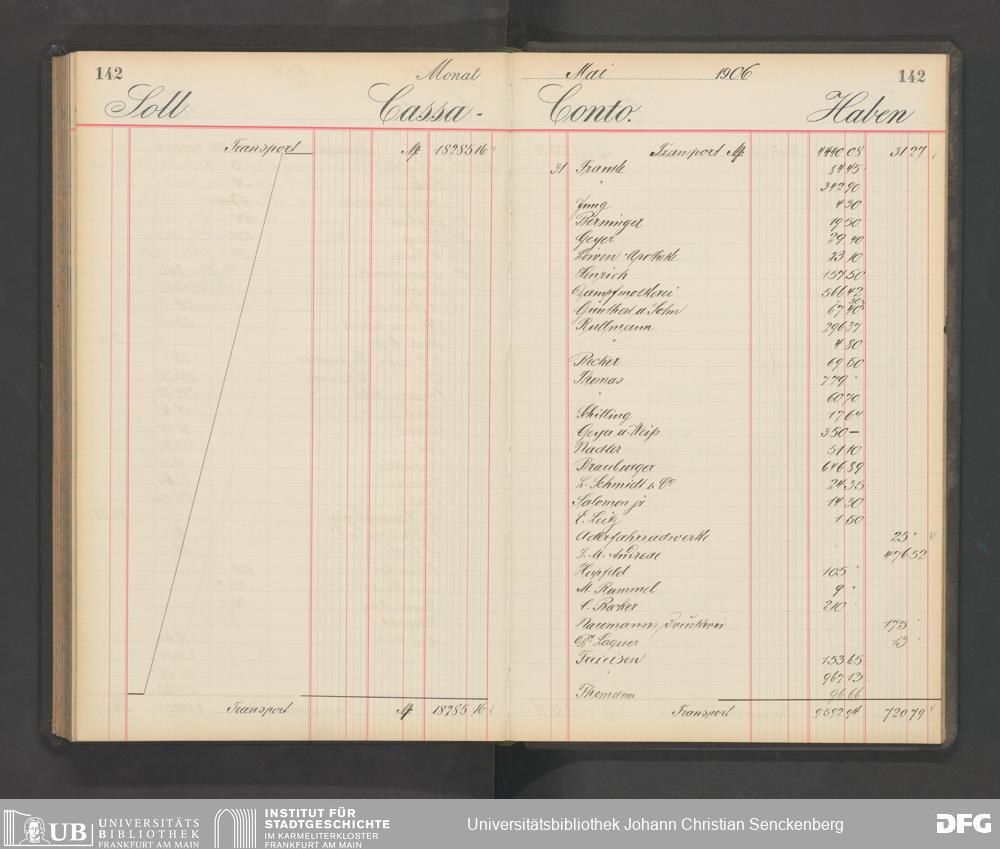 142
Monat
Soll
Cassa-
Transport M 18285 16
Transport M 18285 16
Mai 1906
142
Conto.
Haben
Transport M 4440 08 31 27
31 Franke 84 45
" 342 90
Jung 4 30
Berninger 19 50
Geyer 29 40
Löwen-Apotheke 23 10
Henrich 157 50
Dampfmolkerei 566 42
Günthert u. Sohn 67 40
Rullmann 296 37
" 4 80
Becker 69 60
Thomas 779 "
" 60 70
Schilling 17 64
Geyer u. Weiß 350 —
Nadler 51 10
Brauburger 646 89
L. Schmidt & Co 24 35
Salomon jr 14 30
E. Leitz 1 60
Adlerfahrradwerke 25 "
J. M. Andreae 476 52
Hupfeld 105 "
M. Rummel 9 "
C. Becker 210 "
Naumanns Druckerei 175 "
Dr. Laquer 13 "
153 65
967 13
96 66
Transport 9592 94 720 79
UB UNIVERSITÄTS
BIBLIOTHEK
FRANKFURT AM MAIN
INSTITUT FÜR
STADTGESCHICHTE
IM KARMELITERKLOSTER
FRANKFURT AM MAIN
Universitätsbibliothek Johann Christian Senckenberg
DFG